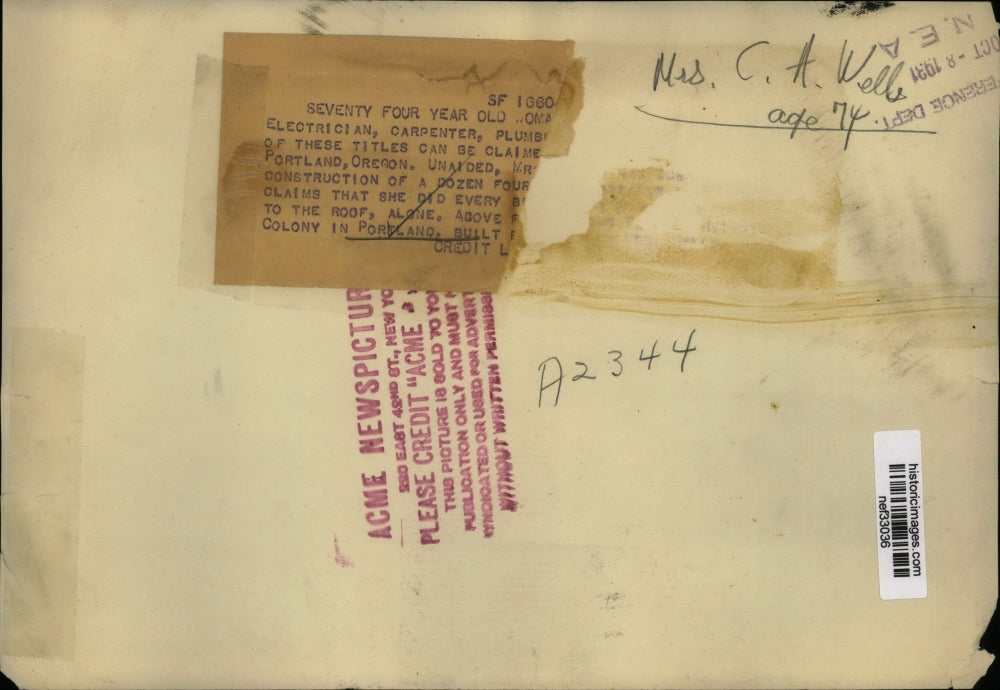 Mrs. C. A. Wells
age 74
N. E. A.
OCT - 8 1931
ERENCE DEPT.
SF 1660
SEVENTY FOUR YEAR OLD
ELECTRICIAN, CARPENTER, PLUMB
OF THESE TITLES CAN BE CLAIME
PORTLAND, OREGON. UNAIDED, MR
CONSTRUCTION OF A DOZEN FOUR
CLAIMS THAT SHE DID EVERY B
TO THE ROOF, ALONE. ABOVE
COLONY IN PORTLAND, BUILT
CREDIT L
ACME NEWSPICTUR
220 EAST 42ND ST., NEW YO
PLEASE CREDIT "ACME
THIS PICTURE IS SOLD TO YO
PUBLICATION ONLY AND MUST
SYNDICATED OR USED FOR ADVERT
WITHOUT WRITTEN PERMISS
A2344
historicimages.com
nef33036